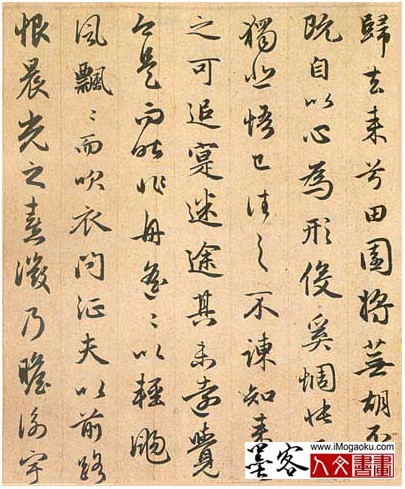 歸去来兮田園將蕪胡不
既自以心為形役奚惆悵
獨悲悟已往之不諫知来
之可追寔迷途其未遠覺
今是而昨非舟遙〻以輕颺
風飄〻而吹衣問征夫以前路
恨晨光之熹微乃瞻衡宇
www.iMogaoku.com
墨客人文書畫